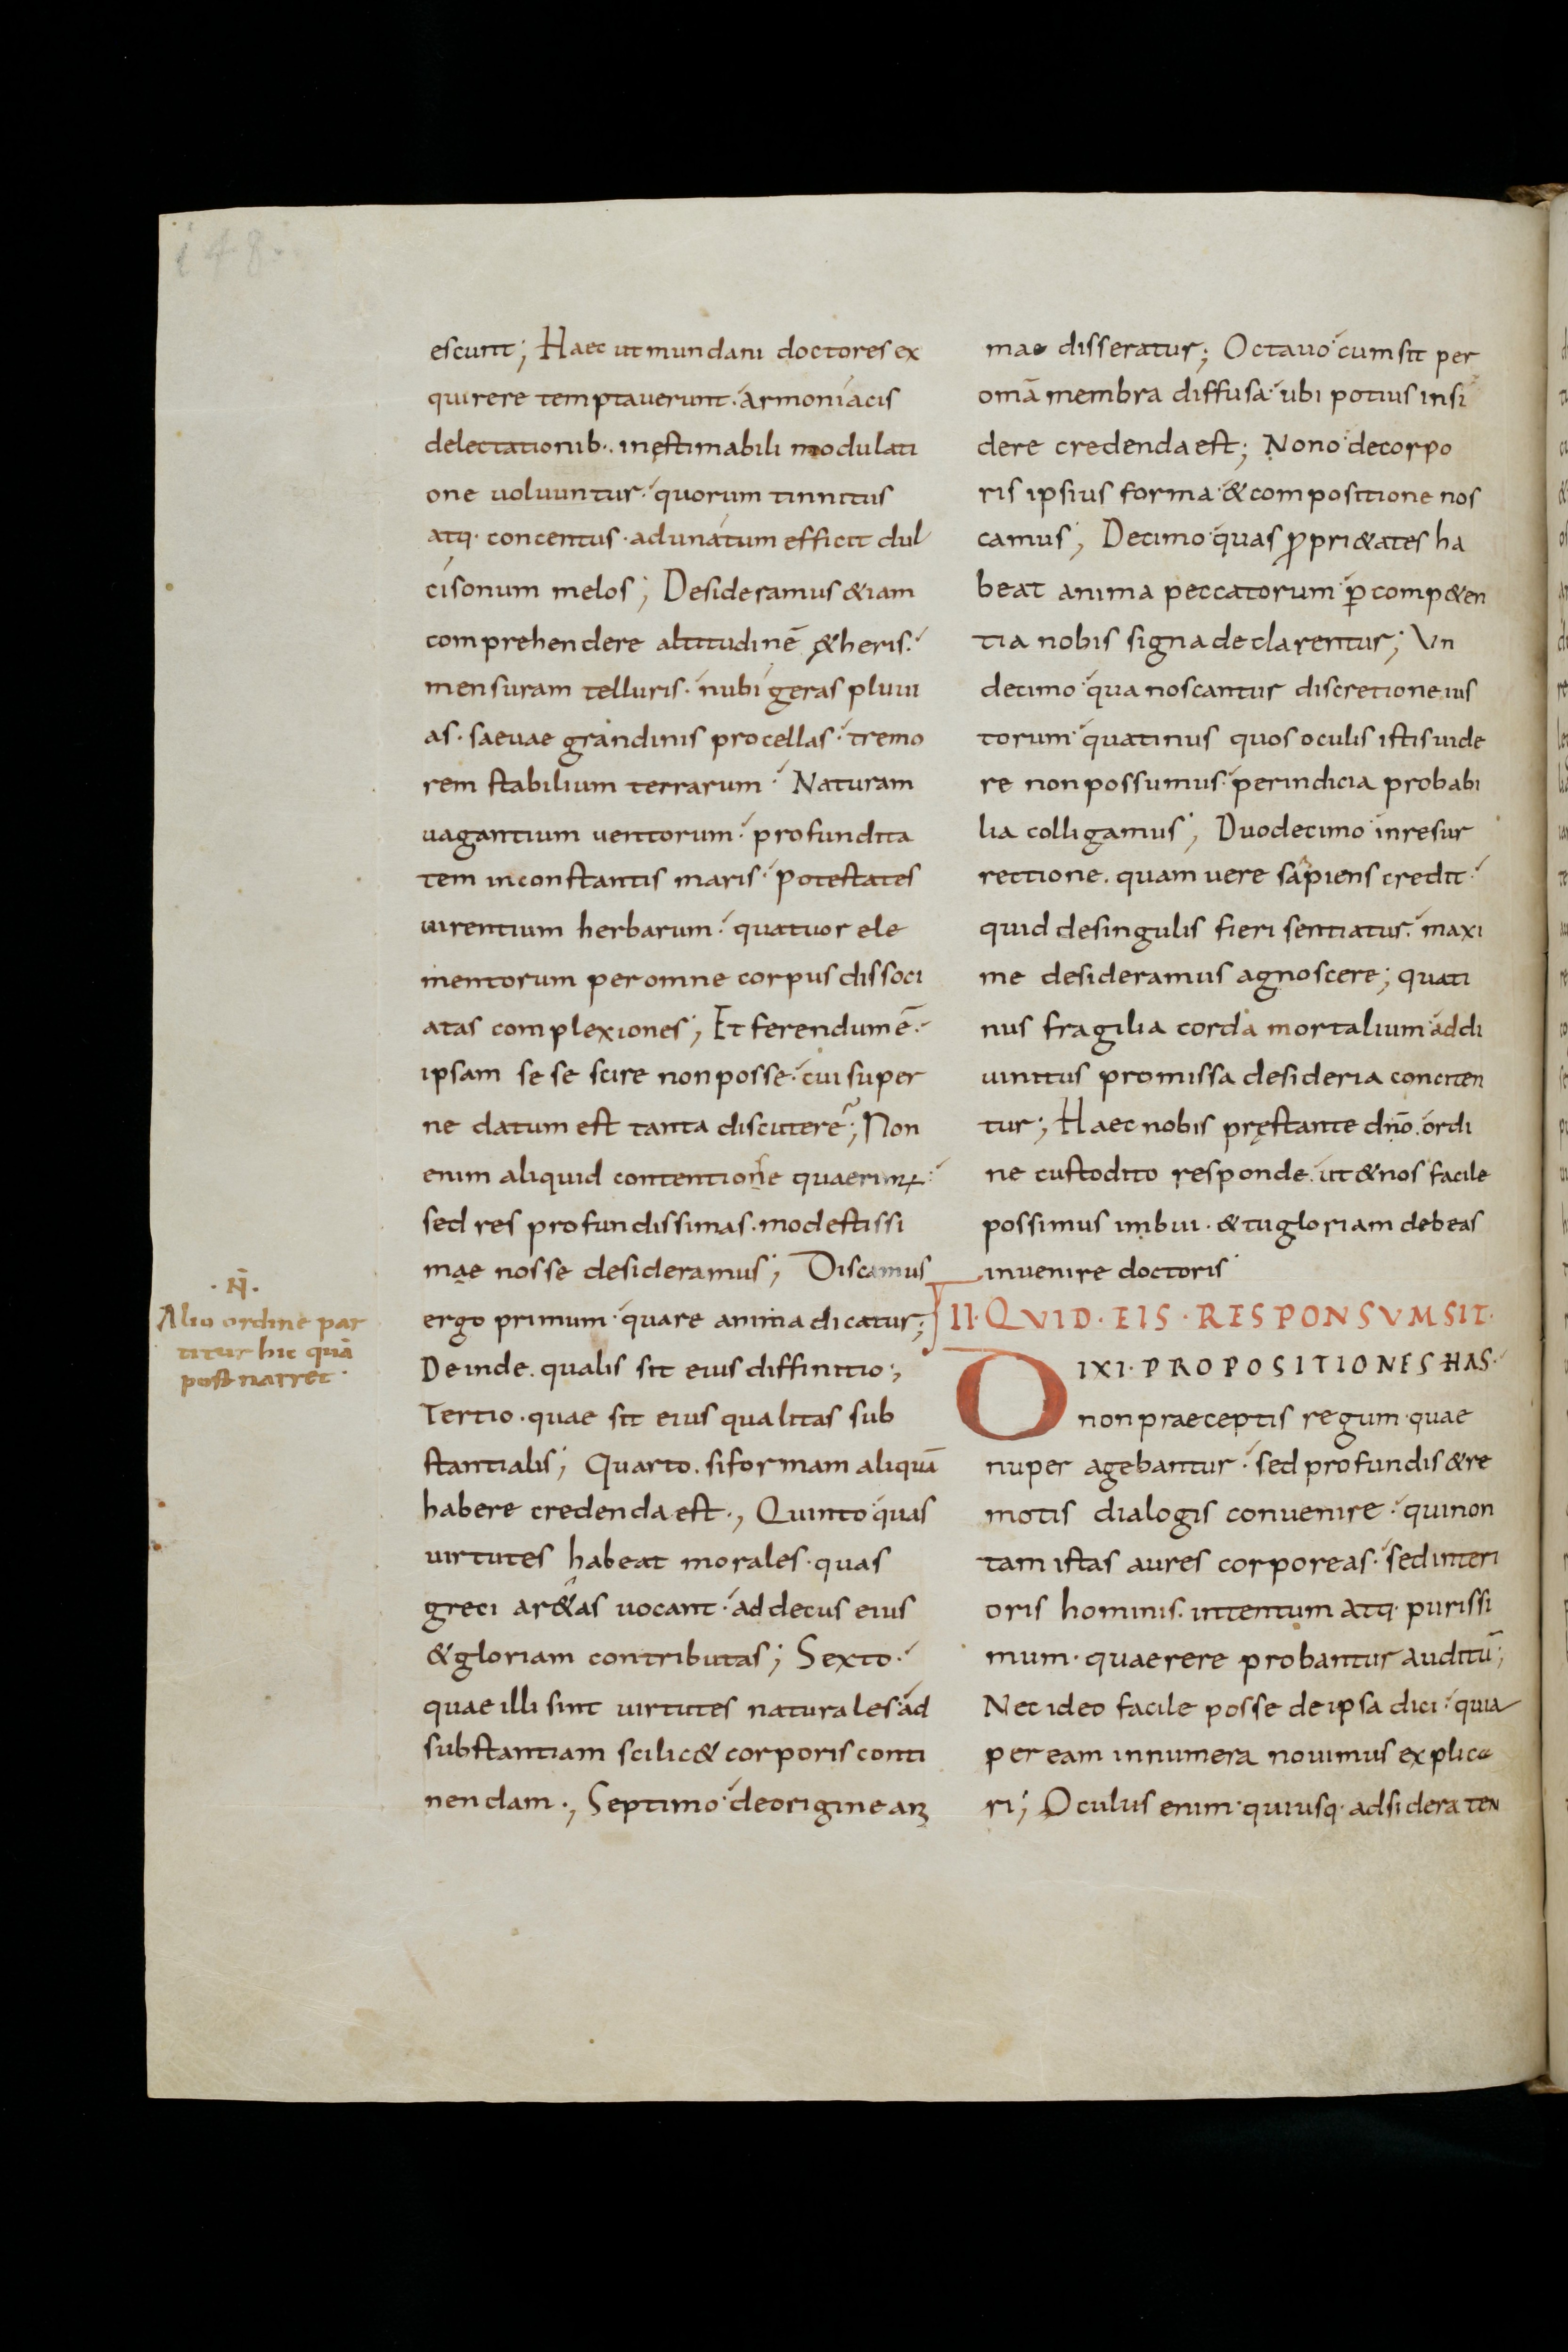 148.
escunt; Haec ut mundani doctores ex
quirere temptaverunt. armoniacis
delectationib·. inęstimabili modulati
one uoluuntur. quorum tinnitus
atq· concentus · adunatum efficit dul
cisonum melos; Desideramus &iam
comprehendere altitudinē ę&heris.
mensuram telluris. nubigeras pluui
as · saeuae grandinis procellas. tremo
rem stabilium terrarum. Naturam
uagantium uentorum. profundita
tem inconstantis maris. potestates
uirentium herbarum. quatuor ele
mentorum per omne corpus dissoci
atas complexiones; Et ferendum ē.
ipsam se se scire non posse. cui super
ne datum est tanta discutere; Non
enim aliquid contentione quaerim;
sed res profundissimas. modestissi
mae nosse desideramus; Discamus
ergo primum. quare anima dicatur;
Deinde. qualis sit eius diffinitio;
Tertio. quae sit eius qualitas sub
stantialis; Quarto. si formam aliquā
habere credenda est., Quinto quas
uirtutes habeat morales. quas
greci ar&as uocant. ad decus eius
& gloriam contributas; Sexto.
quae illi sint uirtutes naturales. ad
substantiam scilic& corporis conti
nendam., Septimo de origine ani
·N̄·
Alio ordine par
titur hic quā
post narret·
mae disseratur; Octauo cum sit per
omā membra diffusa. ubi potius insi
dere credenda est; Nono de corpo
ris ipsius forma & compositione nos
camus; Decimo quas ꝓpri&ates ha
beat anima peccatorum. ꝑ comp&en
tia nobis signa declarentur; Vn
decimo qua noscantur discretione ius
torum. quatinus quos oculis istis uide
re non possumus. per indicia probabi
lia colligamus; Duodecimo in resur
rectione. quam uere sapiens credit.
quid de singulis fieri sentiatur. maxi
me desideramus agnoscere; quati
nus fragilia corda mortalium ad di
uinitus promissa desideria conciten
tur; Haec nobis pręstante dn̄o. ordi
ne custodito responde. ut & nos facile
possimus imbui. & tu gloriam debeas
inuenire doctoris
II· QVID· EIS· RESPONSVM SIT·
DIXI· PROPOSITIONES HAS·
non praeceptis regum quae
nuper agebantur. sed profundis & re
motis dialogis conuenire. qui non
tam istas aures corporeas. sed interi
oris hominis. intentum atq· purissi
mum· quaerere probantur auditū;
Nec ideo facile posse de ipsa dici. quia
per eam innumera nouimus explica
ri; Oculus enim. quiusq· ad sidera ten